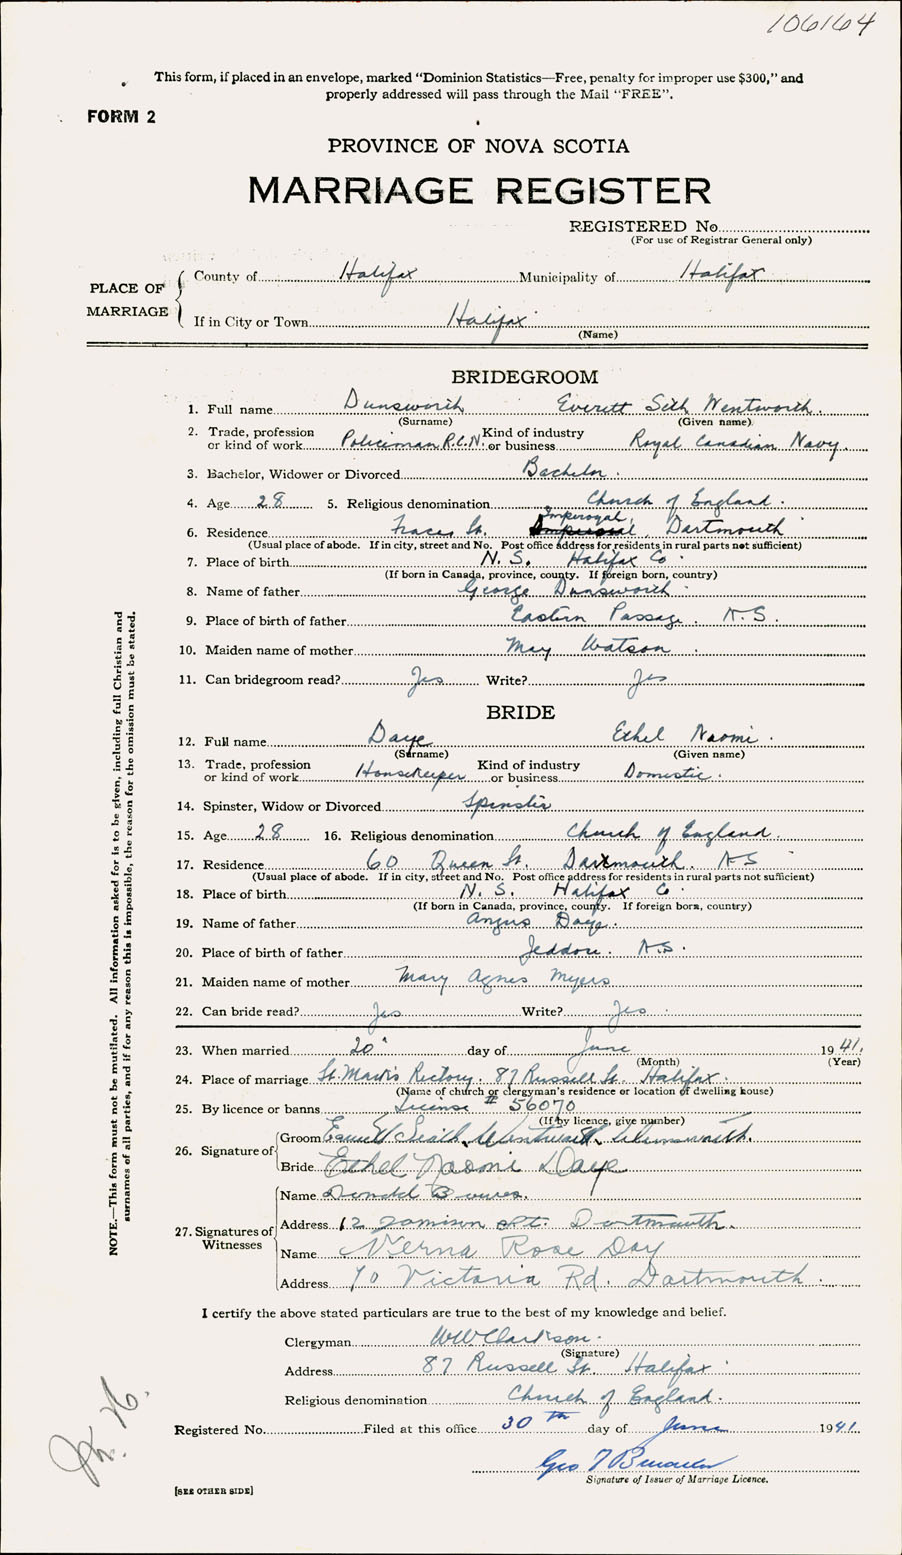 106164
This form, if placed in an envelope, marked "Dominion Statistics—Free, penalty for improper use $300," and
properly addressed will pass through the Mail "FREE".
FORM 2
PROVINCE OF NOVA SCOTIA
MARRIAGE REGISTER
REGISTERED No.
(For use of Registrar General only)
PLACE OF MARRIAGE
County of Halifax Municipality of Halifax
If in City or Town Halifax
(Name)
BRIDEGROOM
1. Full name Dunsworth Everett Seth Wentworth.
(Surname) (Given name)
2. Trade, profession or kind of work Policeman R.C.N. Kind of industry or business Royal Canadian Navy.
3. Bachelor, Widower or Divorced Bachelor.
4. Age 28 5. Religious denomination Church of England.
6. Residence St. Imperoyal, Dartmouth
(Usual place of abode. If in city, street and No. Post office address for residents in rural parts not sufficient)
7. Place of birth N. S. Halifax Co.
(If born in Canada, province, county. If foreign born, country)
8. Name of father George Dunsworth
9. Place of birth of father Eastern Passage. N.S.
10. Maiden name of mother May Watson.
11. Can bridegroom read? Yes Write? Yes
BRIDE
12. Full name Daye Ethel Naomi.
(Surname) (Given name)
13. Trade, profession or kind of work Housekeeper Kind of industry or business Domestic.
14. Spinster, Widow or Divorced Spinster
15. Age 28 16. Religious denomination Church of England.
17. Residence 60 Queen St. Dartmouth. N S
(Usual place of abode. If in city, street and No. Post office address for residents in rural parts not sufficient)
18. Place of birth N. S. Halifax Co.
(If born in Canada, province, county. If foreign born, country)
19. Name of father Angus Daye.
20. Place of birth of father Jeddore. N.S.
21. Maiden name of mother Mary Agnes Myers
22. Can bride read? Yes Write? Yes.
23. When married 20 day of June 1941.
(Month) (Year)
24. Place of marriage St. Mark's Rectory. 87 Russell St. Halifax.
(Name of church or clergyman's residence or location of dwelling house)
25. By licence or banns License # 56070
(If by licence, give number)
26. Signature of
Groom Wentworth Dunsworth.
Bride Ethel Naomi Daye
27. Signatures of Witnesses
Name Donald
Address 12 Jamison St. Dartmouth.
Name Verna Rose Day
Address 70 Victoria Rd. Dartmouth.
I certify the above stated particulars are true to the best of my knowledge and belief.
Clergyman WW Clarkson.
(Signature)
Address 87 Russell St. Halifax.
Religious denomination Church of England.
Registered No. Filed at this office 30th day of June 1941.
Geo T
Signature of Issuer of Marriage Licence.
[SEE OTHER SIDE]
NOTE.—This form must not be mutilated. All information asked for is to be given, including full Christian and
surnames of all parties, and if for any reason this is impossible, the reason for the omission must be stated.